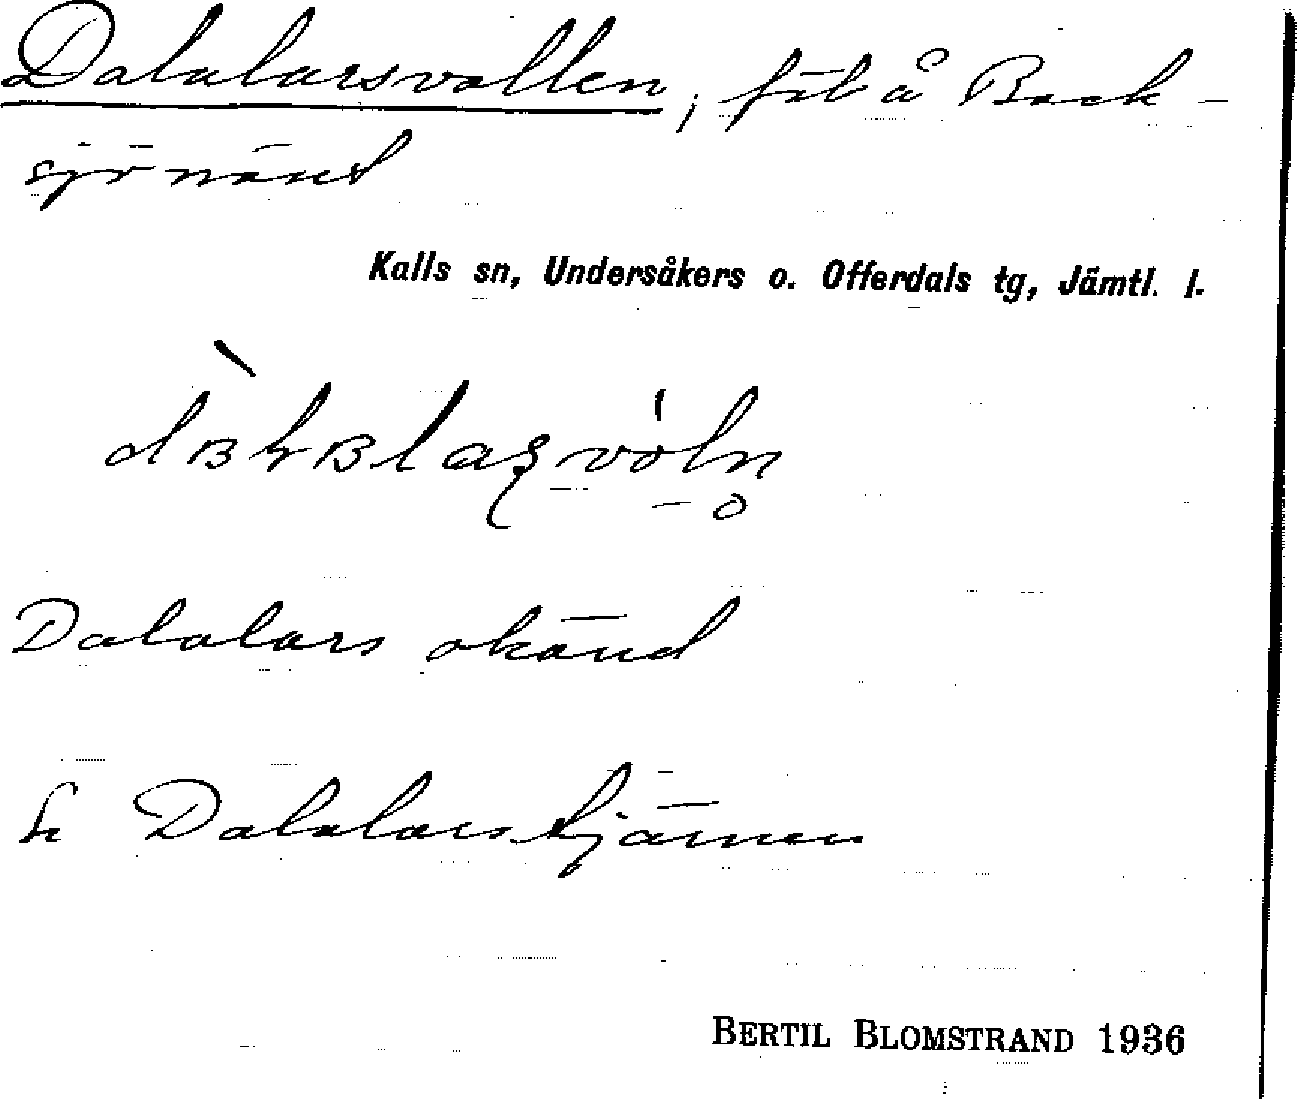 Dalalarsvallen, fäb å Back-
sjönäset
Kalls sn, Undersåkers o. Offerdals tg, Jämtl. l.
Dalalars okänd
Se Dalalarstjärnen
BERTIL BLOMSTRAND 1936